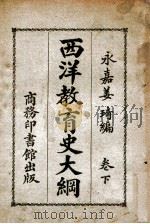 永嘉姜琦編 卷下
西洋教育史大綱
商務印書館出版